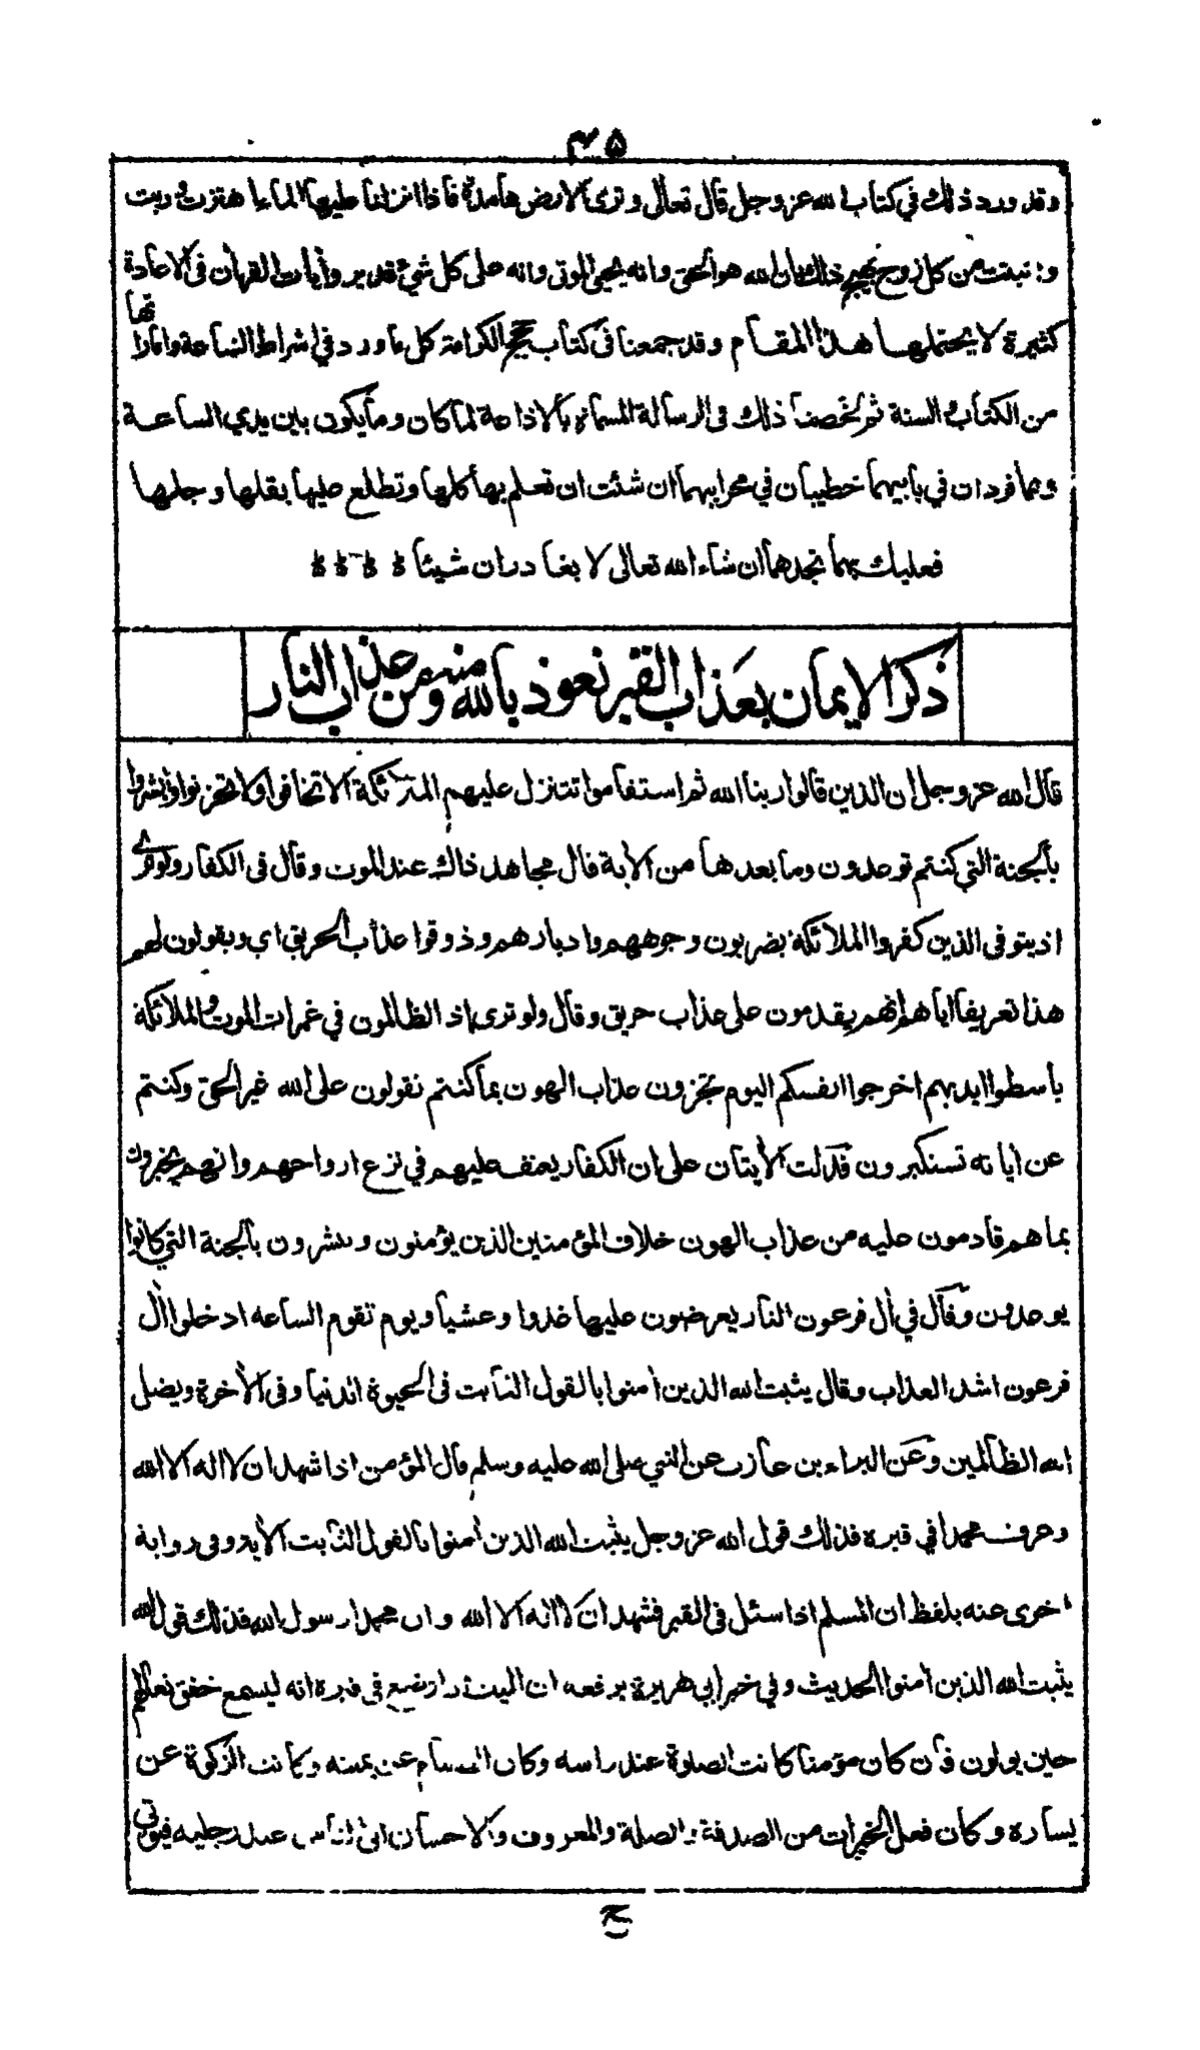 ٤٥
وقد ورد ذلك في كتاب الله عز وجل قال تعالى وترى الارض هامدة فاذا انزلنا عليها الماء اهتزت وربت
وانبتت من كل زوج بهيج ذلك بان الله هو الحق وانه يحيي الموتى وانه على كل شيء قدير وأيات القرأن في الاعادة
كثيرة لا يحتملها هذا المقام وقد جمعنا في كتاب حجج الكرامة كل ما ورد في اشراط الساعة واماراتها
من الكتاب والسنة ثم لخصنا ذلك في الرسالة المسماة بالاذاعة لما كان وما يكون بين يدي الساعة
وهما فردان في بابيهما خطيبان في محرابيهما ان شئت ان تعلم بها كلها وتطلع عليها بقلها وجلها
فعليك بهما تجدهما ان شاء الله تعالى لا يغادران شيئا
ذكر الايمان بعذاب القبر نعوذ بالله منه ومن عذاب النار
قال الله عز وجل ان الذين قالوا ربنا الله ثم استقاموا تتنزل عليهم الملائكة الا تخافوا ولا تحزنوا وابشروا
بالجنة التي كنتم توعدون وما بعدها من الاية قال مجاهد ذاك عند الموت وقال في الكفار ولو ترى
اذ يتوفى الذين كفروا الملائكة يضربون وجوههم وادبارهم وذوقوا عذاب الحريق اي ويقولون لهم
هذا تعريفا اياهم انهم يقدمون على عذاب حريق وقال ولو ترى اذ الظالمون في غمرات الموت والملائكة
باسطوا ايديهم اخرجوا انفسكم اليوم تجزون عذاب الهون بما كنتم تقولون على الله غير الحق وكنتم
عن اياته تستكبرون فدلت الأيتان على ان الكفار يعنف عليهم في نزع ارواحهم وانهم يخبرون
بما هم قادمون عليه من عذاب الهون خلاف المؤمنين الذين يؤمنون ويبشرون بالجنة التي كانوا
يوعدون وقال في أل فرعون النار يعرضون عليها غدوا وعشيا ويوم تقوم الساعه ادخلوا أل
فرعون اشد العذاب وقال يثبت الله الذين أمنوا بالقول الثابت في الحيوة الدنيا وفي الأخرة ويضل
الله الظالمين وعن البراء بن عازب عن النبي صلى الله عليه وسلم قال المؤمن اذا شهد ان لا اله الا الله
وعرف محمدا في قبره فذلك قول الله عز وجل يثبت الله الذين أمنوا بالقول الثابت الأية وفي رواية
اخرى عنه بلفظ ان المسلم اذا سئل في القبر فشهد ان لا اله الا الله وان محمدا رسول الله فذلك قول الله
يثبت الله الذين أمنوا الحديث وفي خبر ابي هريرة يرفعه ان الميت اذا وضع في قبره انه ليسمع خفق نعالهم
حين يولون فان كان مؤمنا كانت الصلوة عند راسه وكان الصيام عن يمينه وكانت الزكوة عن
يساره وكان فعل الخيرات من الصدقة والصلة والمعروف والاحسان الى الناس عند رجليه فيؤتى